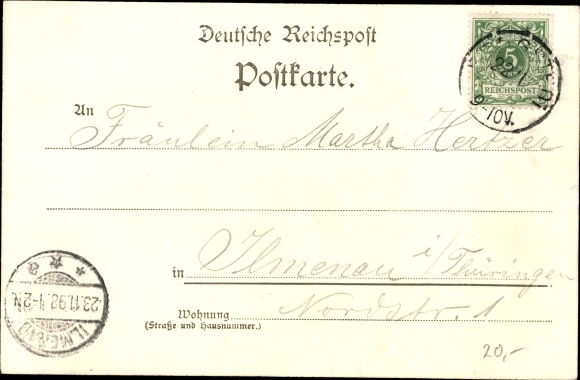 Deutsche Reichspost
Postkarte.
5
REICHSPOST
9-10V.
An
Fräulein Martha Hertzer
in Ilmenau i/Thüringen
Wohnung Nordstr. 1
(Straße und Hausnummer.)
23.11.98.1-2N
ILMENAU
20,-